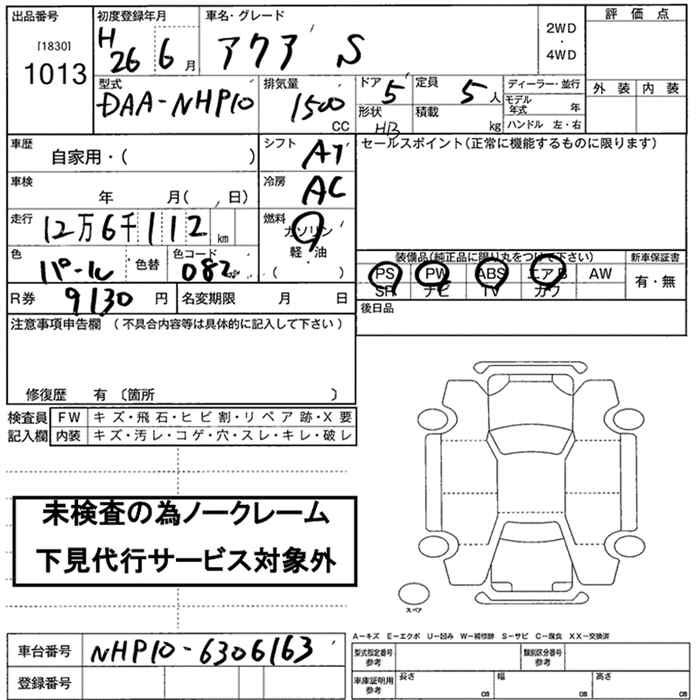 出品番号
[1830]
1013
初度登録年月
H 26 6 月
車名・グレード
アクア S
2WD
・
4WD
評価点
外装 内装
型式
DAA-NHP10
排気量
1500 CC
ドア 5
形状 HB
定員 5 人
積載 kg
ディーラー・並行
モデル年式 年
ハンドル 左・右
車歴
自家用・( )
シフト AT
セールスポイント(正常に機能するものに限ります)
車検
年 月( , 日)
冷房 AC
走行
12万6千112 km
燃料
ガソリン
軽・油
( )
色
パール
・色替
色コード
082
装備品(純正品に限り丸をつけて下さい)
PS PW ABS エアB AW
SR ナビ TV カワ
新車保証書
有・無
R券 9130 円
名変期限 月 日
後日品
注意事項申告欄 (不具合内容等は具体的に記入して下さい)
修復歴 有 〔箇所 〕
検査員記入欄
FW キズ・飛石・ヒビ割・リペア跡・X要
内装 キズ・汚レ・コゲ・穴・スレ・キレ・破レ
未検査の為ノークレーム
下見代行サービス対象外
スペア
A-キズ E-エクボ U-凹み W-補修跡 S-サビ C-腐食 XX-交換済
車台番号 NHP10-6306163
登録番号
型式指定番号
参考
類別区分番号
参考
車庫証明用
参考
長さ cm
幅 cm
高さ cm